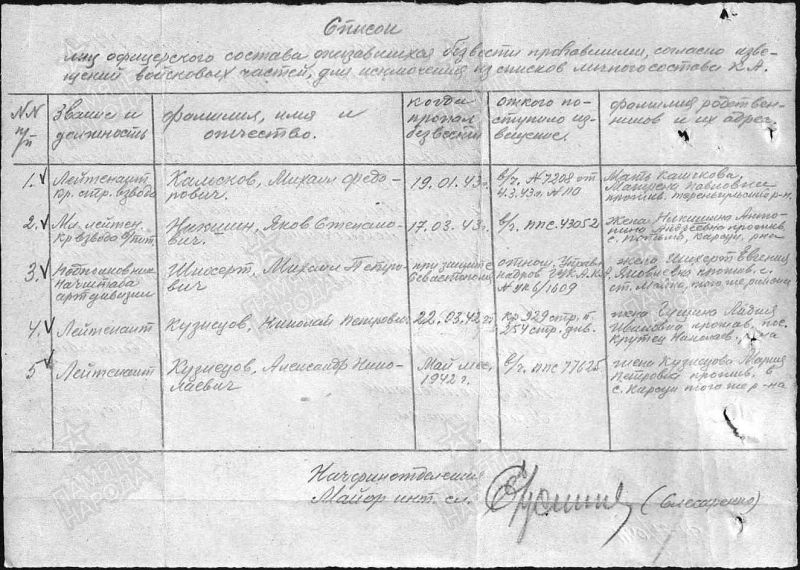 Список
лиц офицерского состава оказавшихся безвести пропавшими, согласно изве-
щений войсковых частей, для исключения из списков личного состава К.А.
NN
п/п
Звание и
должность
фамилия, имя и
отчество.
когда
пропал
безвести
откого по-
ступило из-
вещение.
фамилия родствен-
ников и их адрес.
1.
Лейтенант
кр. стр. взвода
Михаил Федо-
рович.
19.01.43г.
в/ч. №7208 от
4.3.43г. №110
Мать
Павловна
прожив.
2.
Мл. лейтен.
кр взвода
Никишин, Яков Степано-
вич.
17.03.43г.
в/ч. ппс. 43052
жена Никишина Анто-
нина Андреевна прожив
с. Карсун. р-на
3.
Подполковник
Начштаба
артдивизии
Михаил Петро-
вич
при защите
Севастополя
кадров ГУК.А.К.А.
жена Евгения
Яковлевна прожив. с.
ст. Майна, того же района
4.
Лейтенант
Кузнецов, Николай Петрович
22.03.42г.
кр 929 стр. п.
254 стр. див.
жена Лидия
Ивановна прожив. пос.
5
Лейтенант
Кузнецов, Александр Нико-
лаевич
Май мес.
1942 г.
в/ч. ппс 77625
жена Кузнецова Мария
Петровна прожив. в
с. Карсун того же р-на
Начфинотделения
Майор инт. сл.
(Слесаренко)
ПАМЯТЬ
НАРОДА